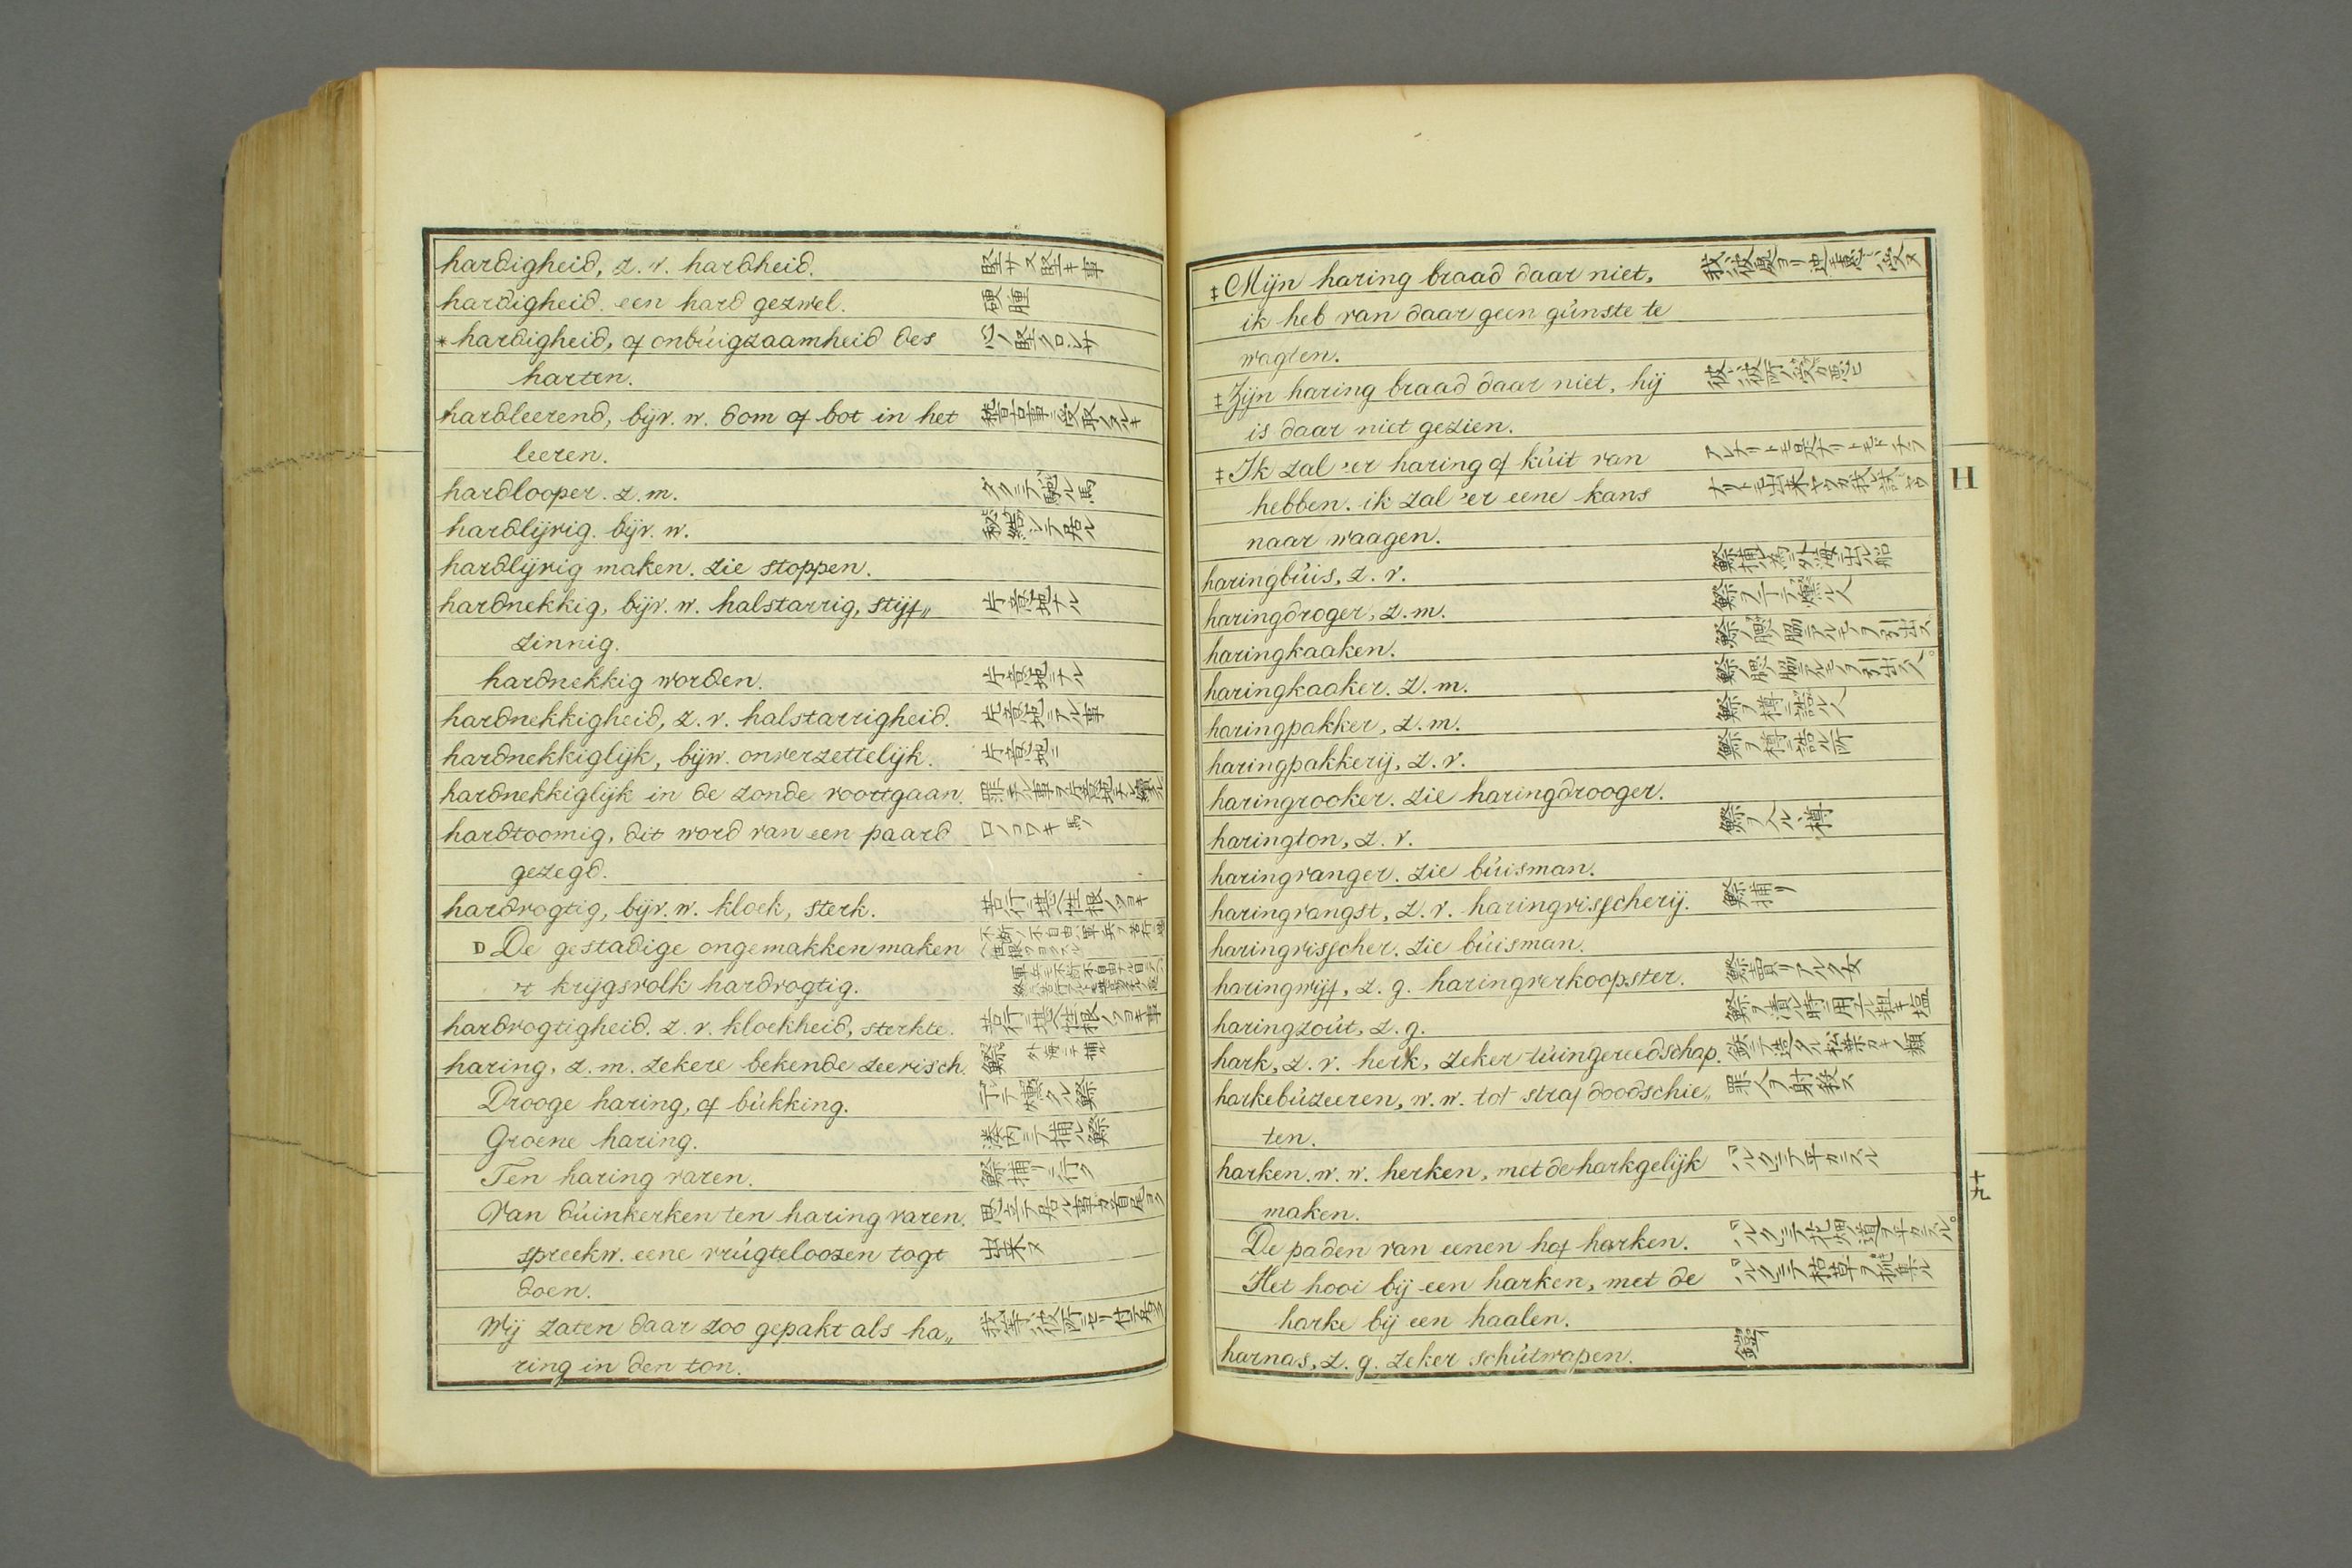 hardigheid, z. v. hardheid. 堅サ又堅キ事
hardigheid. een hard gezwel. 硬腫
* hardigheid, of onbúigzaamheid des 心ノ堅クロシサ
harten.
hardleerend, bijv. w. dom of bot in het 稽古事ニ受取ノワルキ
leeren.
hardlooper. z. m. ダクニテ馳ル馬
hardlijvig. bijv. w. 秘結シテ居ル
hardlijvig maken. zie stoppen.
hardnekkig, bijv. w. halstarrig, stijf„ 片意地ナル
zinnig.
hardnekkig worden. 片意地ニナル
hardnekkigheid, z. v. halstarrigheid. 片意地ニアル事
hardnekkiglijk, bijw. onverzettelijk. 片意地ニ
hardnekkiglijk in de zonde voortgaan.
hardtoomig, dit word van een paard 口ノコワキ馬ノ
gezegd.
hardvogtig, bijv. w. kloek, sterk. 苦行ニ堪ヘ性根ノツヨキ
D De gestadige ongemakken maken
't krijgsvolk hardvogtig.
hardvogtigheid. z. v. kloekheid, sterkte. 苦行ニ堪ヘ性根ノツヨキ事
haring, z. m. zekere bekende zeevisch. 鰶 外海ニテ捕ル
Drooge haring, of búkking. 干テ燻タル鰶
Groene haring. 湊内ニテ捕ル鰶
Ten haring varen. 鰶捕リニ行ク
Van dúinkerken ten haring varen. 思立テ居ル事カ首尾ヨク
spreekw. eene vrúgteloozen togt 出来ヌ
doen.
Wij zaten daar zoo gepakt als ha„
ring in den ton.
‡ Mijn haring braad daar niet,
ik heb van daar geen gúnste te
wagten.
‡ Zijn haring braad daar niet, hij 彼ハ彼所ノ受ガ悪シヒ
is daar niet gezien.
‡ Ik zal 'er haring of kúit van
hebben. ik zal 'er eene kans
naar waagen.
haringbúis, z. v. 鰶捕ノ為ニ外海ニ出ル船
haringdroger, z. m. 鰶ヲ干テ燻ル人
haringkaaken. 鰶ノ腮ノ脇ニアルモノヲ引出ス
haringkaaker. z. m. 鰶ノ腮ノ脇ニアルモノヲ引出ス人。
haringpakker, z. m. 鰶ヲ樽ニ詰ル人
haringpakkerij, z. v. 鰶ヲ樽ニ詰ル所
haringrooker. zie haringdrooger.
harington, z. v. 鰶ヲ入ルヽ樽
haringvanger. zie búisman.
haringvangst, z. v. haringvisscherij. 鰶捕リ
haringvisscher. zie búisman.
haringwijf, z. g. haringverkoopster. 鰶賣リアルク女
haringzoút, z. g. 鰶ヲ漬ル時ニ用ユル粗キ塩
hark, z. v. herk, zeker túingereedschap. 鉄ニテ造タル松葉カキノ類
harkebúzeeren, w. w. tot straf doodschie„ 罪人ヲ射殺ス
ten.
harken. w. w. herken, met de hark gelijk 「ハルク」ニテ平カニスル
maken.
De paden van eenen hof harken. 「ハルク」ニテ花畑ノ道ヲ平カニスル。
Het hooi bij een harken, met de
harke bij een haalen.
harnas, z. g. zeker schútwapen. 鎧
H
十九